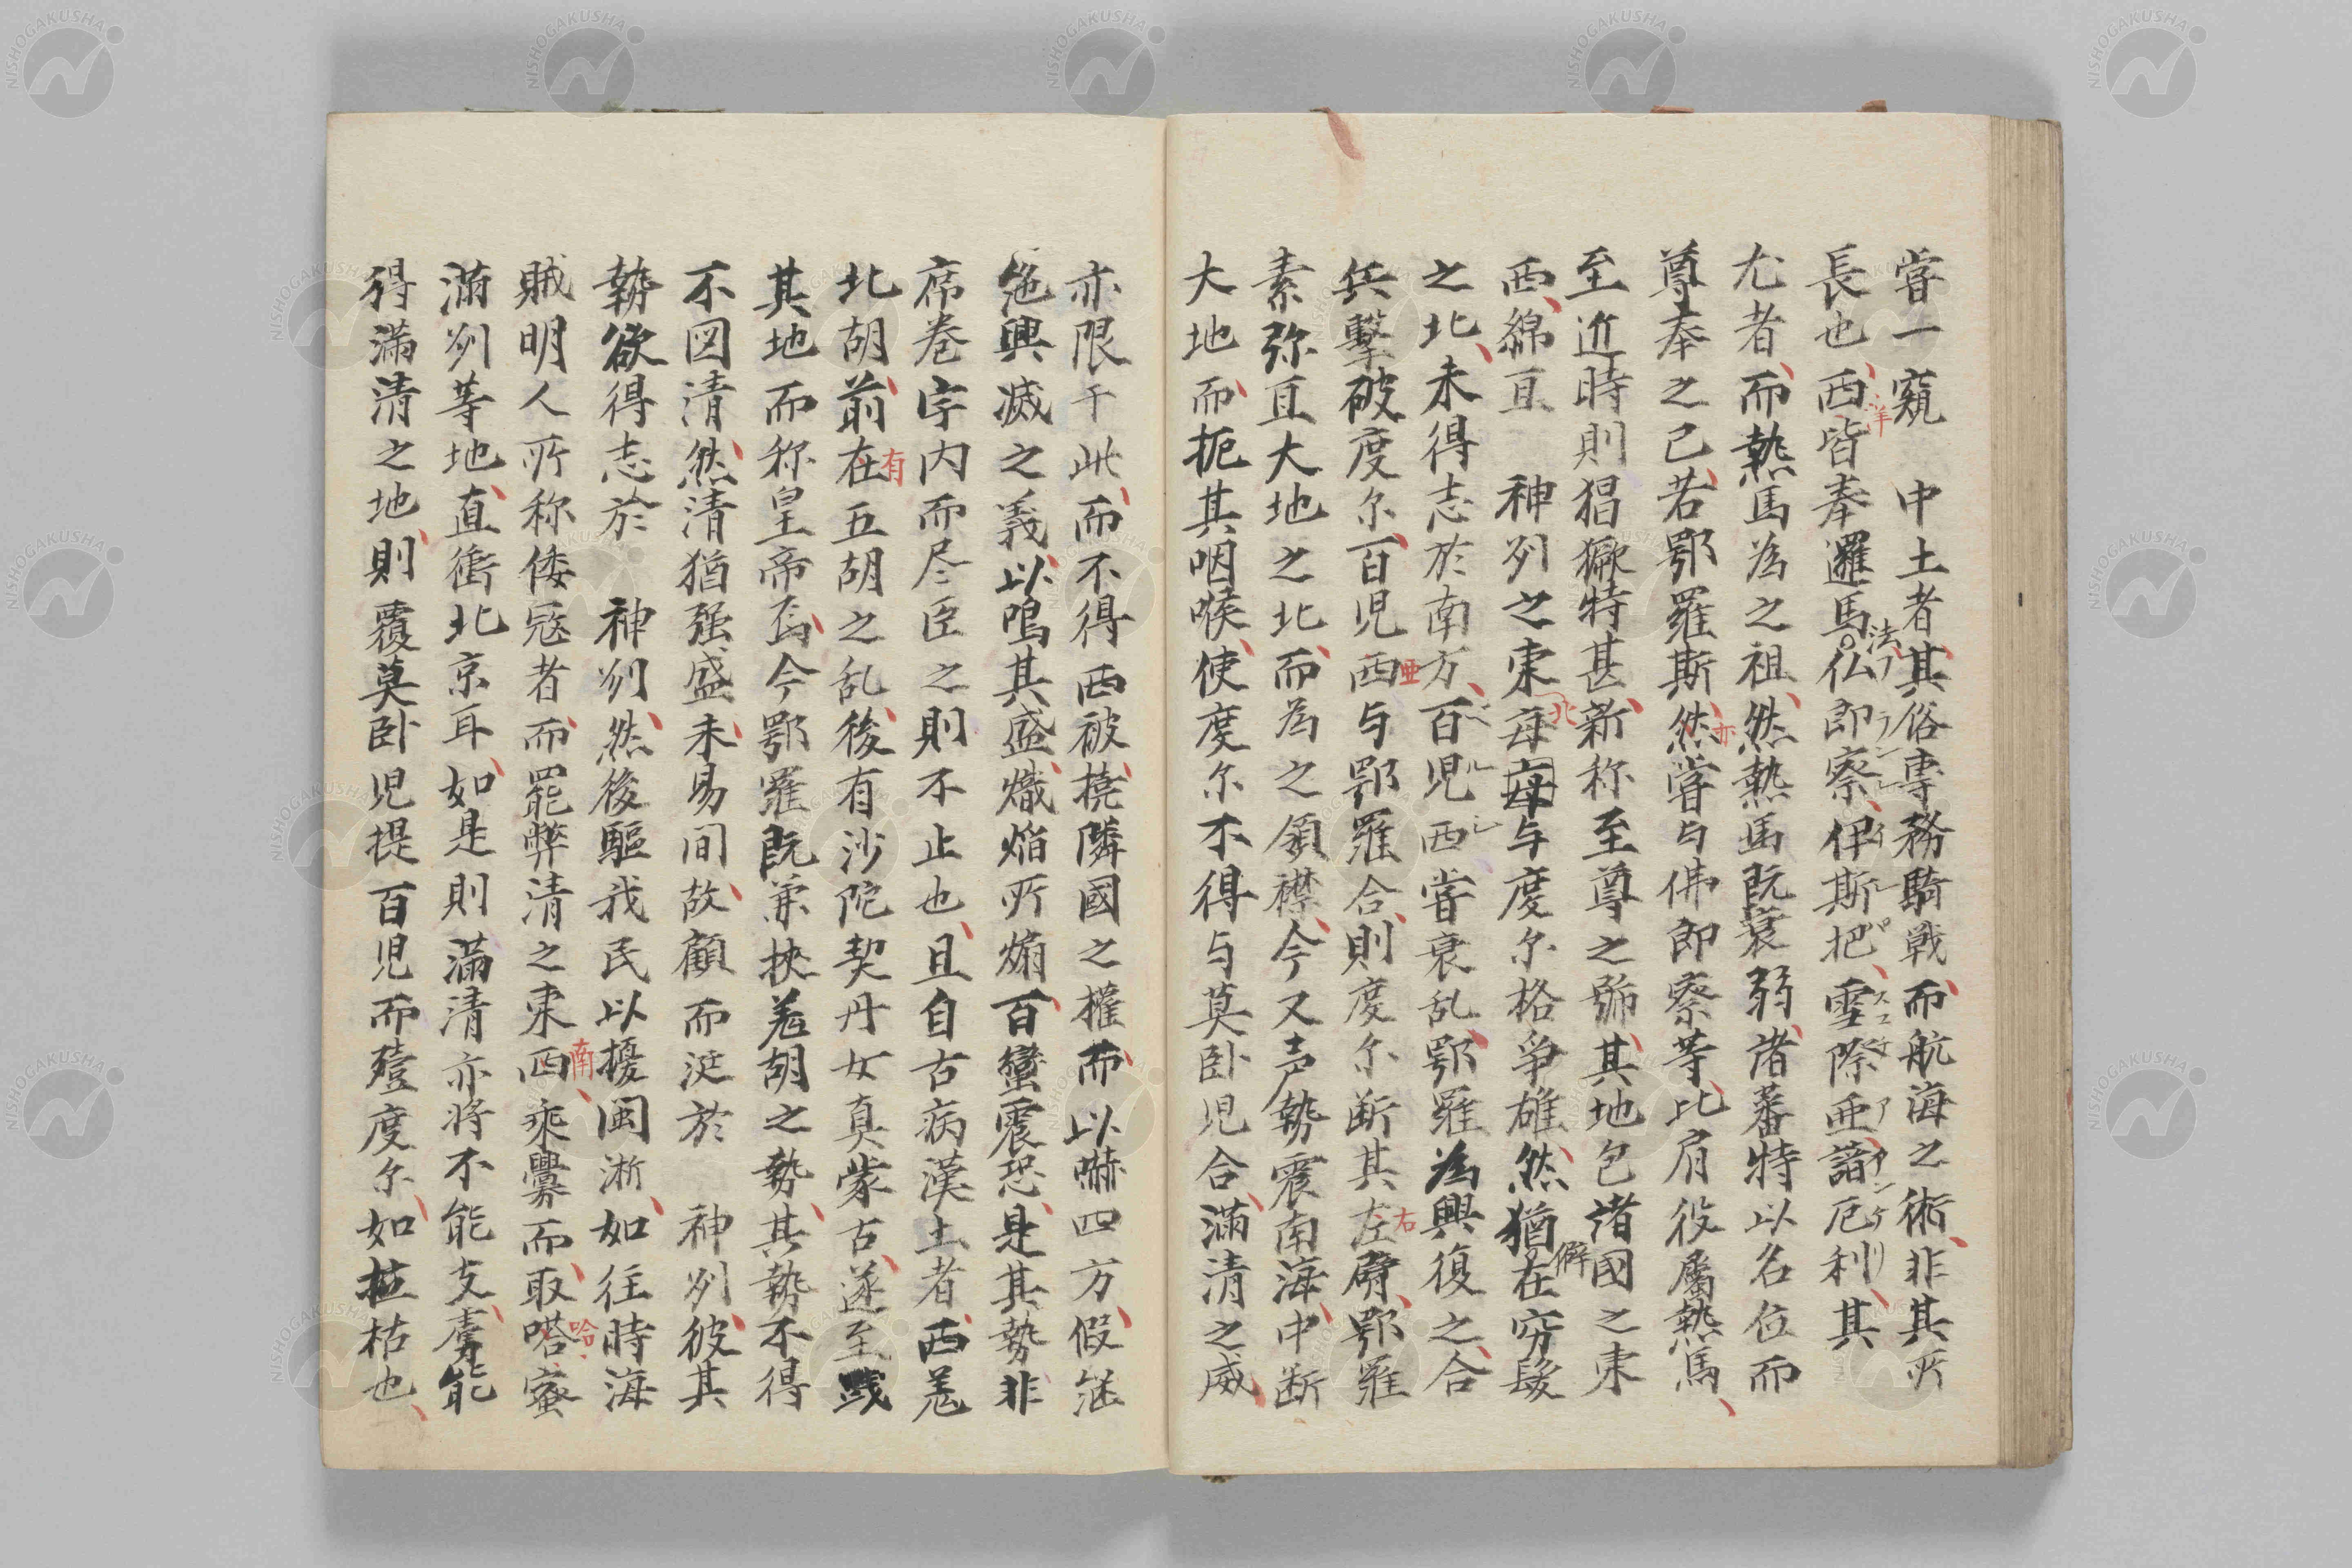 嘗一窺　中土者其俗專務騎戦而航海之術非其所
長也西皆奉邏馬法仏郎察伊斯把雪際亜諳厄利其
尤者而熱馬為之祖然熱馬既衰弱諸蕃特以名位而
尊奉之已若鄂羅斯然嘗与佛郎察等比肩役属熱馬
至近時則猖獗特甚新称至尊之号其地包諸國之東
西綿亘　神州之東毎与度尓格爭雄然猶在窮髮
之北未得志於南方百児西嘗衰乱鄂羅為興復之合
兵撃破度尓百児西与鄂羅合則度尓断其左臂鄂羅
素弥亘大地之北而為之領襟今又声勢震南海中断
大地而扼其咽喉使度尓不得与莫臥児合満清之威
亦限于此而不得西被撓隣國之權而以嚇四方假継
絶興滅之義以鳴其盛熾焔所煽百蠻震恐是其勢非
席巻宇内而尽臣之則不止也且自古病漢土者西羌
北胡前在五胡之乱後有沙陀契丹女真蒙古遂至践
其地而称皇帝焉今鄂羅既兼挟羌胡之勢其勢不得
不図清然清猶強盛未易間故顧而涎於　神州彼其
勢欲得志於　神州然後驅我民以擾閩淅如往時海
賊明人所称倭冦者而罷弊清之東西乘釁而取嗒蜜
満州等地直衝北京耳如是則満清亦将不能支虜能
得満清之地則覆莫臥児提百児而殪度尓如拉枯也
洋
亦
北
僻
亜
右
有
南
哈
NISHOGAKUSHA